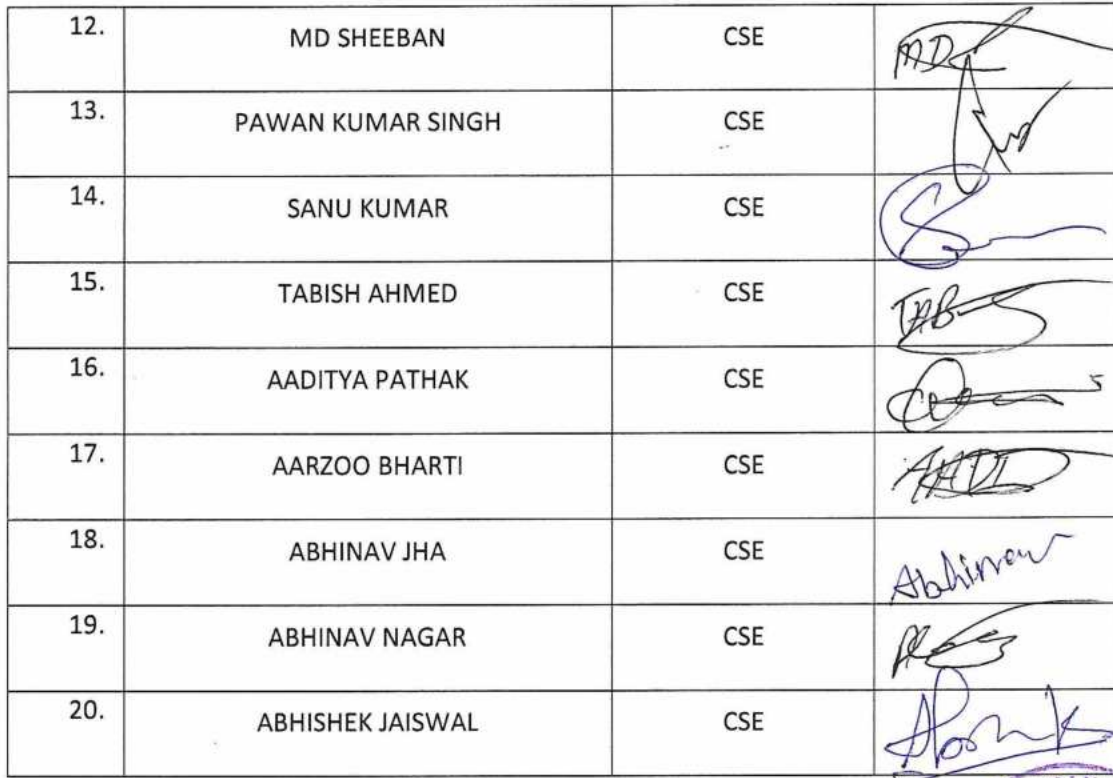 12. MD SHEEBAN CSE MD
13. PAWAN KUMAR SINGH CSE
14. SANU KUMAR CSE
15. TABISH AHMED CSE TAB
16. AADITYA PATHAK CSE
17. AARZOO BHARTI CSE
18. ABHINAV JHA CSE Abhinav
19. ABHINAV NAGAR CSE
20. ABHISHEK JAISWAL CSE